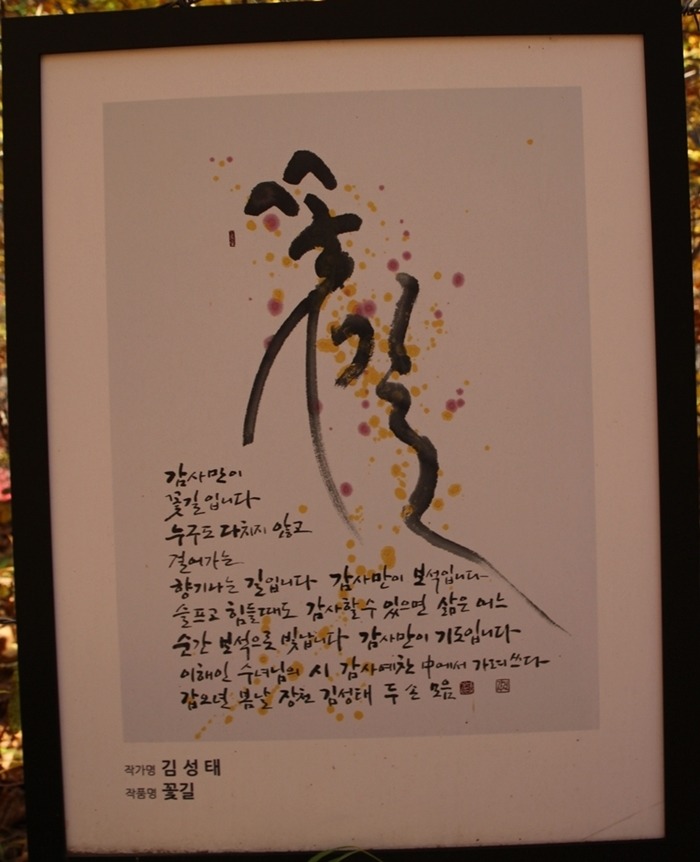 꽃길
감사만이
꽃길입니다
누구도 다치지 않고
걸어가는
향기나는 길입니다 감사만이 보석입니다
슬프고 힘들때도 감사할수 있으면 삶은 어느
순간 보석으로 빛납니다 감사만이 기도입니다
이해인 수녀님의 시 감사예찬 中에서 가려쓰다
갑오년 봄날 장천 김성태 두 손 모음
작가명 김성태
작품명 꽃길